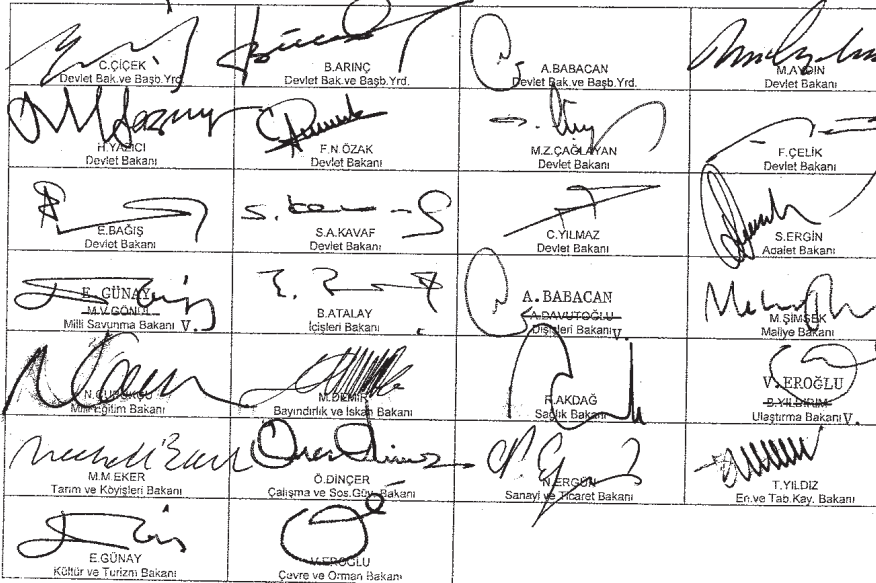 C.ÇİÇEK
Devlet Bak.ve Başb.Yrd.
B.ARINÇ
Devlet Bak.ve Başb.Yrd.
A.BABACAN
Devlet Bak.ve Başb.Yrd.
M.AYDIN
Devlet Bakanı
H.YAZICI
Devlet Bakanı
F.N.ÖZAK
Devlet Bakanı
M.Z.ÇAĞLAYAN
Devlet Bakanı
F.ÇELİK
Devlet Bakanı
E.BAĞIŞ
Devlet Bakanı
S.A.KAVAF
Devlet Bakanı
C.YILMAZ
Devlet Bakanı
S.ERGİN
Adalet Bakanı
E. GÜNAY
M.V.GÖNÜL
Milli Savunma Bakanı V.
B.ATALAY
İçişleri Bakanı
A.BABACAN
A.DAVUTOĞLU
Dışişleri Bakanı V.
M.ŞİMŞEK
Maliye Bakanı
N.ÇUBUKÇU
Milli Eğitim Bakanı
M.DEMİR
Bayındırlık ve İskan Bakanı
R.AKDAĞ
Sağlık Bakanı
V.EROĞLU
B.YILDIRIM
Ulaştırma Bakanı V.
M.M.EKER
Tarım ve Köyişleri Bakanı
Ö.DİNÇER
Çalışma ve Sos.Güv. Bakanı
N.ERGÜN
Sanayi ve Ticaret Bakanı
T.YILDIZ
En.ve Tab.Kay. Bakanı
E.GÜNAY
Kültür ve Turizm Bakanı
V.EROĞLU
Çevre ve Orman Bakanı